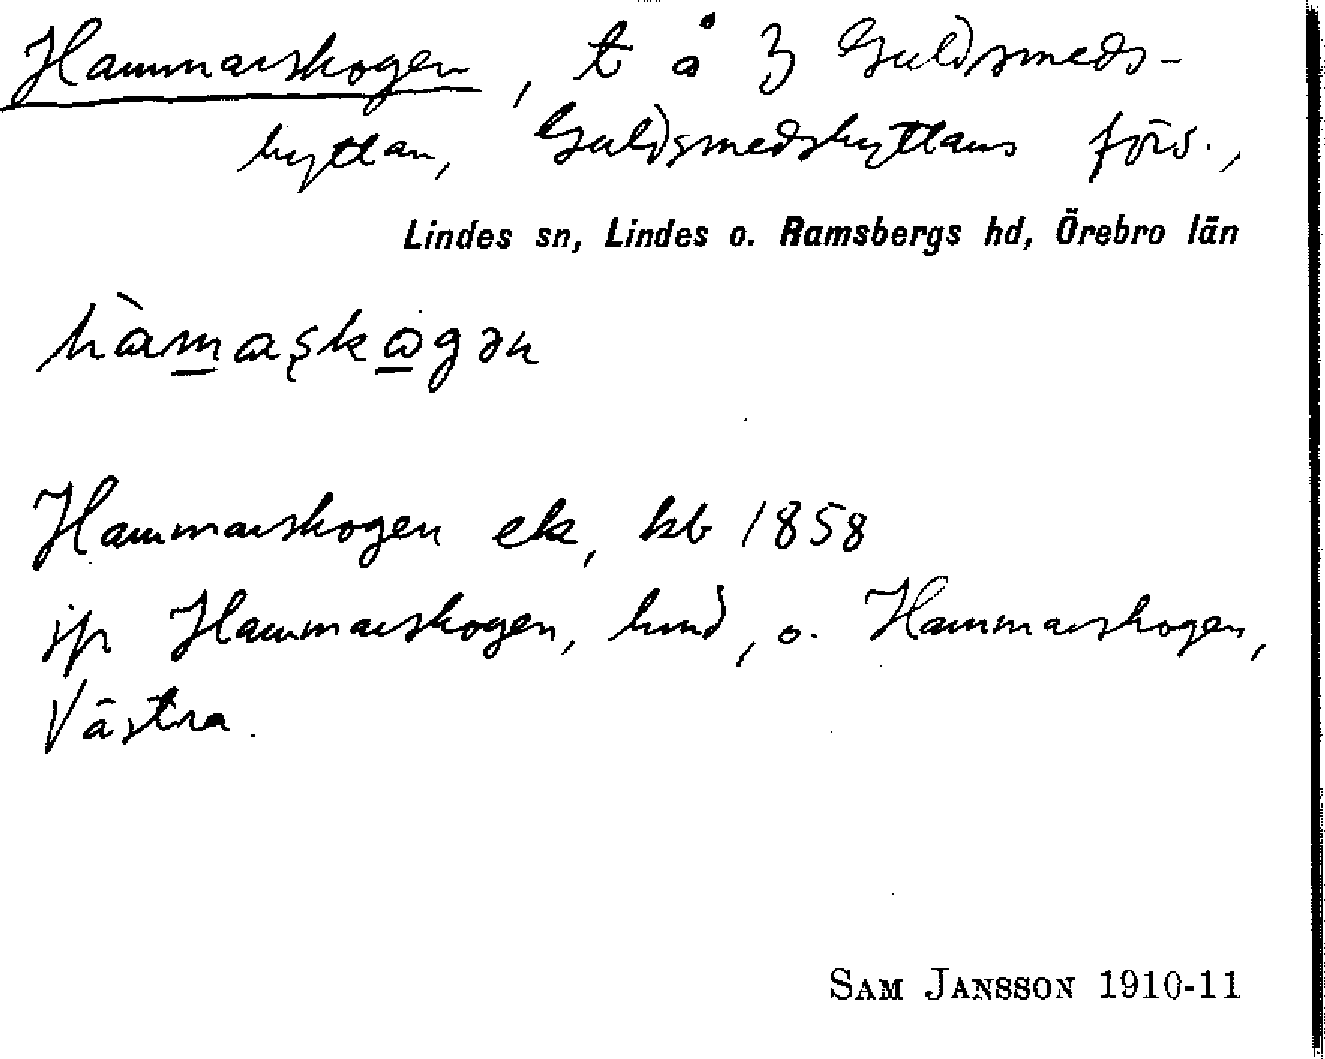 Hammarskogen, t å 3 Guldsmeds-
hyttan, Guldsmedshyttans förs.,
Lindes sn, Lindes o. Ramsbergs hd, Örebro län
hàmaskogən
Hammarskogen ek, kb 1858
jfr Hammarskogen, hmd, o. Hammarskogen,
Västra.
SAM JANSSON 1910-11